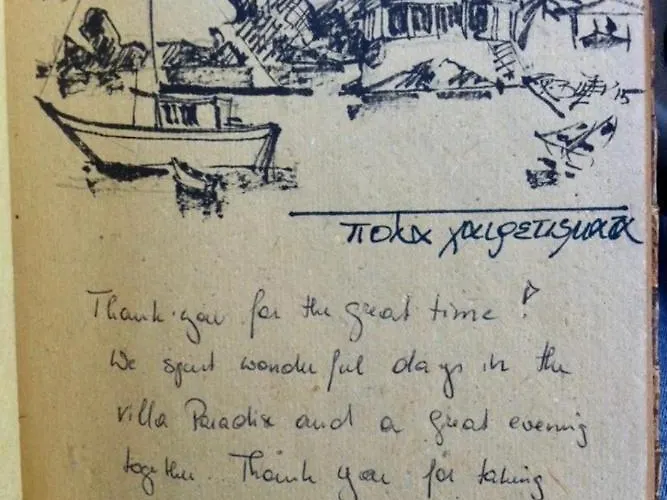 '15
πολα χαιρετισματα
Thank you for the great time!
We spent wonderful days in the
Villa Paradise and a great evening
together. Thank you for taking